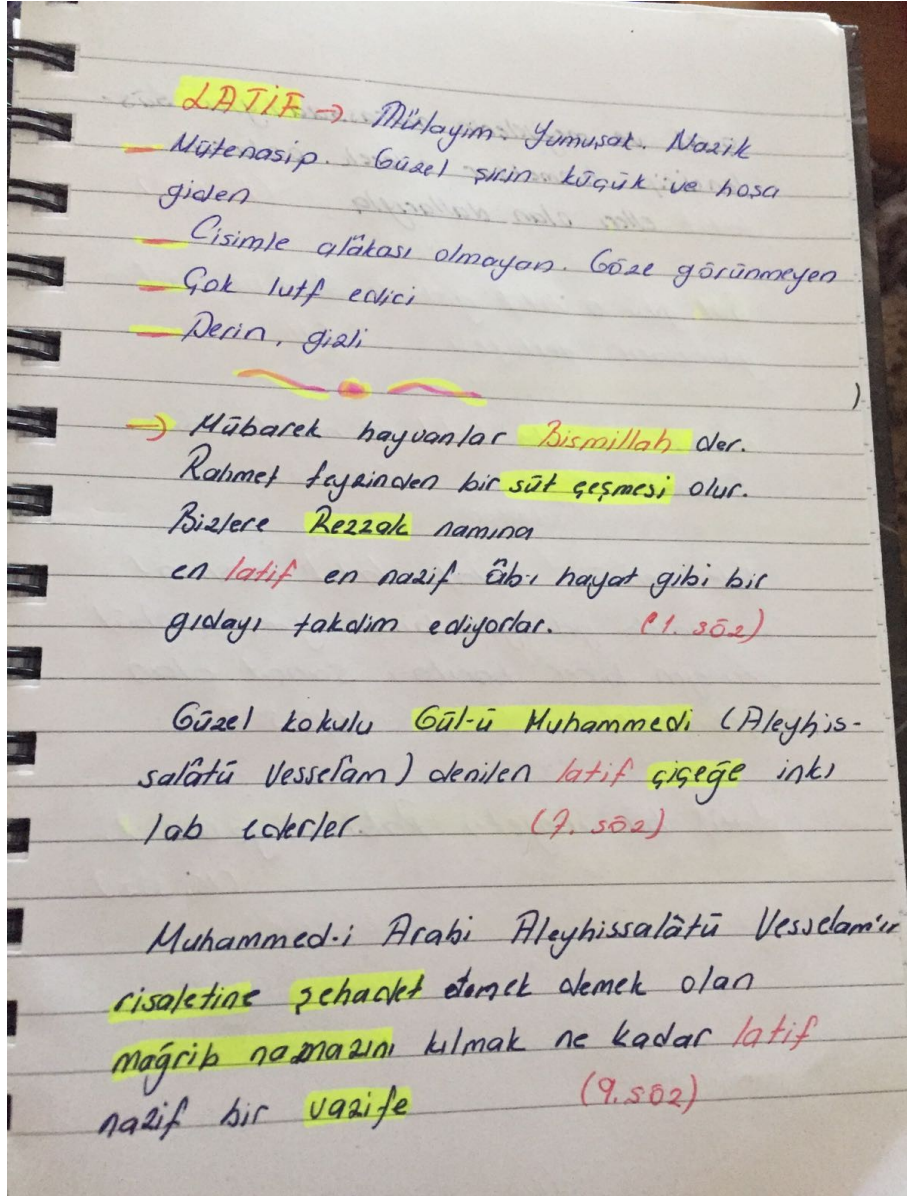 LATİF → Mülayim Yumuşak. Nazik
— Mütenasip. Güzel şirin küçük ve hoşa
giden
— Cisimle alâkası olmayan. Göze görünmeyen
— Çok lutf edici
— Derin, gizli
→ Mübarek hayvanlar Bismillah der.
Rahmet feyzinden bir süt çeşmesi olur.
Bizlere Rezzak namına
en latif en nazif âb-ı hayat gibi bir
gıdayı takdim ediyorlar. (1. söz)
Güzel kokulu Gül-ü Muhammedi (Aleyhis-
salâtü Vesselâm) denilen latif çiçeğe inkı
lab ederler. (7. söz)
Muhammed-i Arabi Aleyhissalâtü Vesselam'ın
risaletine şehadet etmek demek olan
mağrib namazını kılmak ne kadar latif
nazif bir vazife (9. söz)